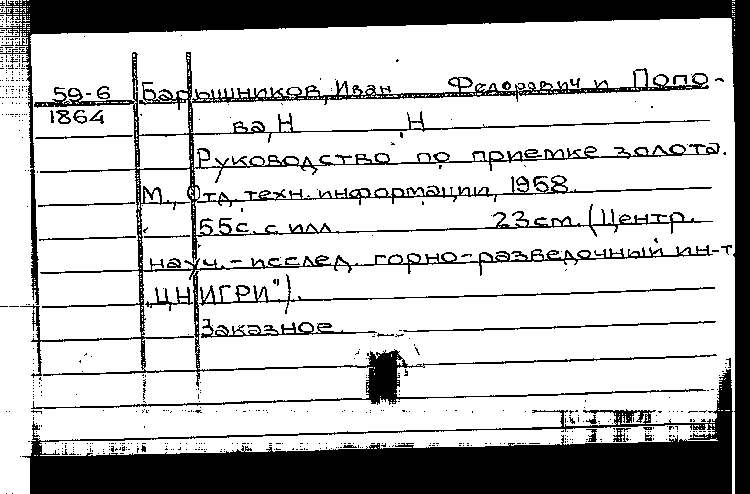 59-6 Барышников, Иван Федорович и Попо-
1864 ва, Н , Н
Руководство по приемке золота.
М., Отд. техн. информации, 1958.
55с. с илл. 23см. (Центр.
науч.-исслед. горно-разведочный ин-т.
"ЦНИГРИ").
Заказное.